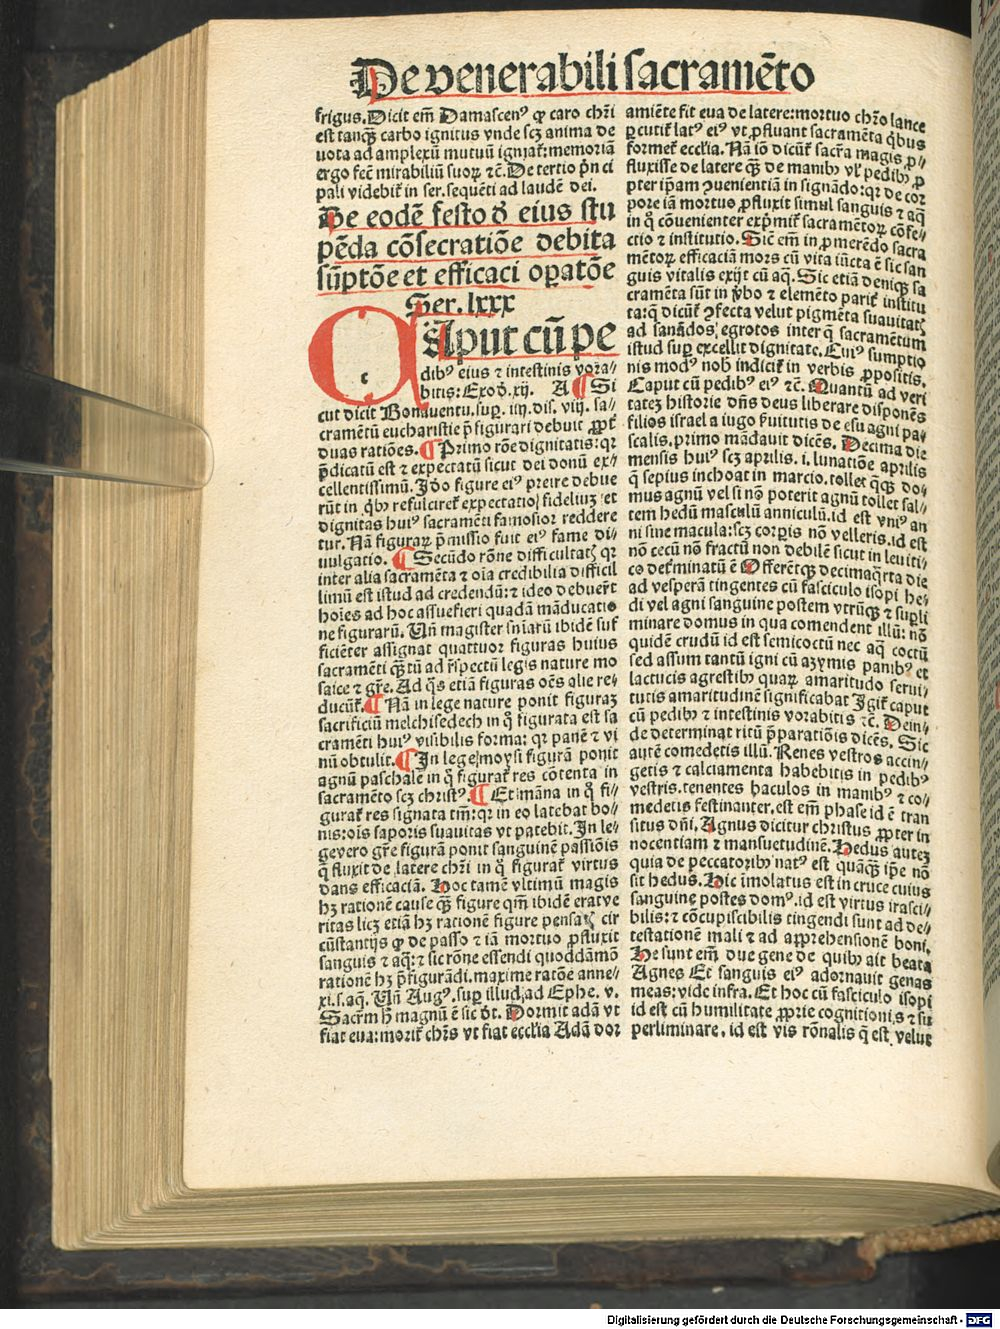 De venerabili sacramēto
frigus. Dicit em̄ Damascenꝰ ꝙ caro chr̄i
est tanqꝫ carbo ignitus vnde scꝫ anima de
uota ad amplexū mutuū ignīat᷑: memoriā
ergo fec̄ mirabiliū suoꝝ ⁊c̄. De tertio p̄n ci
pali videbit᷑ in ser. sequēti ad laudē dei.
De eodē festo ⁊ eius stu
pēda cōsecratiōe debita
sūptōe et efficaci oꝑatōe
Ser. lxxx
Aput cū pe
dibꝰ eius ⁊ intestinis vora⸗
bitis: Exod̓. xij. A Si
cut dicit Bonauentu. suꝑ. iiij. dis. viij. sa⸗
cramētū eucharistie p̄figurari debuit ꝓpt᷑
duas ratiōes. Primo rōe dignitatis: qꝛ
p̄dicatū est ⁊ expectatū sicut dei donū ex⸗
cellentissimū. Iō figure eiꝰ preire debue
rūt in q̇bꝰ refulciret᷑ expectatio fideliuꝫ et
dignitas huiꝰ sacramēti famosior reddere
tur. Nā figuraꝝ p̄missio fuit eiꝰ fame di⸗
uulgatio. Secūdo rōne difficultatꝭ qꝛ
inter alia sacramēta ⁊ oīa credibilia difficil
limū est istud ad credendū: ⁊ ideo debuer̄t
hoīes ad hoc assuefieri quadā māducatio
ne figurarū. Vn̄ magister sn̄iarū ibidē suf
ficiēter assignat quattuor figuras huius
sacramēti qꝫtū ad r̄spectū legis nature mo
saice ⁊ gr̄e. Ad q̄s etiā figuras oēs alie re⸗
ducūt᷑. Nā in lege nature ponit figuraꝫ
sacrificiū melchisedech in q̊ figurata est sa
cramēti huiꝰ visibilis forma: qꝛ panē ⁊ vi
nū obtulit. In lege moysi figurā ponit
agnū paschale in q̊ figurat᷑ res cōtenta in
sacramēto scꝫ christꝰ. Et māna in q̊ fi⸗
gurat᷑ res signata tm̄: qꝛ in eo latebat bo⸗
nis: oīs saporis suauitas vt patebit. In le⸗
ge vero gr̄e figurā ponit sanguinē passiōis
q̄ fluxit de latere chr̄i in q̊ figurat᷑ virtus
dans efficaciā. Hoc tamē vltimū magis
hꝫ rationē cause qꝫ figure qm̄ ibidē erat ve
ritas licꝫ etiā hꝫ rationē figure pensatꝭ cir
cūstantijs ꝙ de passo ⁊ iā mortuo ꝓfluxit
sanguis ⁊ aq̄: ⁊ sic rōne essendi quoddāmō
rationē hꝫ p̄figurādi. maxime ratōe anne⸗
xi. s. aq̄. Vn̄ Augꝰ. suꝑ illud ad Ephe. v.
Sacrm̄ h̄ magnū ē sic d̓t. Dormit adā vt
fiat eua: morit᷑ chr̄s vt fiat eccl̄ia Adā dor
amiēte fit eua de latere: mortuo chr̄o lance
ꝑcutit᷑ latꝰ eiꝰ vt ꝓfluant sacramēta q̇bus
formet᷑ eccl̄ia. Nā iō dicūt᷑ sacr̄a magis ꝓ⸗
fluxisse de latere qꝫ de manibꝰ vl̓ pedibꝰ ꝓ
pter ip̄am ꝯuenientiā in signādo: qꝛ de cor
pore iā mortuo ꝓfluxit simul sanguis ⁊ aq̄
in q̊ cōuenienter exp̄mit᷑ sacramētoꝝ cōfe⸗
ctio ⁊ institutio. Sic em̄ in ꝓmerēdo sacra
mētoꝝ efficaciā mors cū vita iūcta ē sic san
guis vitalis exijt cū aq̄. Sic etiā deniqꝫ sa
cramēta sūt in v̓bo ⁊ elemēto parit᷑ institu
ta: q̄ dicūt᷑ ꝯfecta velut pigmēta suauitatꝭ
ad sanādos egrotos inter q̄ sacramētum
istud suꝑ excellit dignitate. Cuiꝰ sumptio
nis modꝰ nob̓ indicit᷑ in verbis ꝓpositis.
Caput cū pedibꝰ eiꝰ ⁊c̄. Quantū ad veri
tateꝫ historie dn̄s deus liberare disponēs
filios israel a iugo ẜuitutis de esu agni pa⸗
scalis. primo mādauit dicēs. Decima die
mensis huiꝰ scꝫ aprilis. i. lunatiōe aprilis
q̄ sepius inchoat in marcio. tollet qꝫqꝫ do⸗
mus agnū vel si nō poterit agnū tollet sal⸗
tem hedū masculū anniculū. id est vniꝰ an
ni sine macula: scꝫ corꝑis nō velleris. id est
nō cecū nō fractū non debilē sicut in leuiti⸗
co det᷑minatū ē Offerētqꝫ decimaq̄rta die
ad vesperā tingentes cū fasciculo isopi he⸗
di vel agni sanguine postem vtrūqꝫ ⁊ suꝑli
minare domus in qua comendent illū: nō
quidē crudū id est semicoctū nec aq̄ coctū
sed assum tantū igni cū azymis panibꝰ et
lactucis agrestibꝰ quaꝝ amaritudo serui⸗
tutis amaritudinē significabat Igit᷑ caput
cū pedibꝰ ⁊ intestinis vorabitis ⁊c̄. Dein⸗
de determinat ritū p̄paratiōis dicēs. Sic
autē comedetis illū. Renes vestros accin⸗
getis ⁊ calciamenta habebitis in pedibꝰ
vestris. tenentes baculos in manibꝰ ⁊ co⸗
medetis festinanter. est em̄ phase id ē tran
situs dn̄i. Agnus dicitur christus ꝓpter in
nocentiam ⁊ mansuetudinē. Hedus auteꝫ
quia de peccatoribꝰ natꝰ est quāqꝫ ip̄e nō
sit hedus. Hic īmolatus est in cruce cuius
sanguine postes domꝰ. id est virtus irasci⸗
bilis: ⁊ cōcupiscibilis tingendi sunt ad de⸗
testationē mali ⁊ ad apprehensionē boni.
He sunt em̄ due gene de quibꝰ ait beata
Agnes Et sanguis eiꝰ adornauit genas
meas: vide infra. Et hoc cū fasciculo isopi
id est cū humilitate ꝓprie cognitionis ⁊ su
perliminare. id est vis rōnalis q̄ est velut
Digitalisierung gefördert durch die Deutsche Forschungsgemeinschaft - DFG